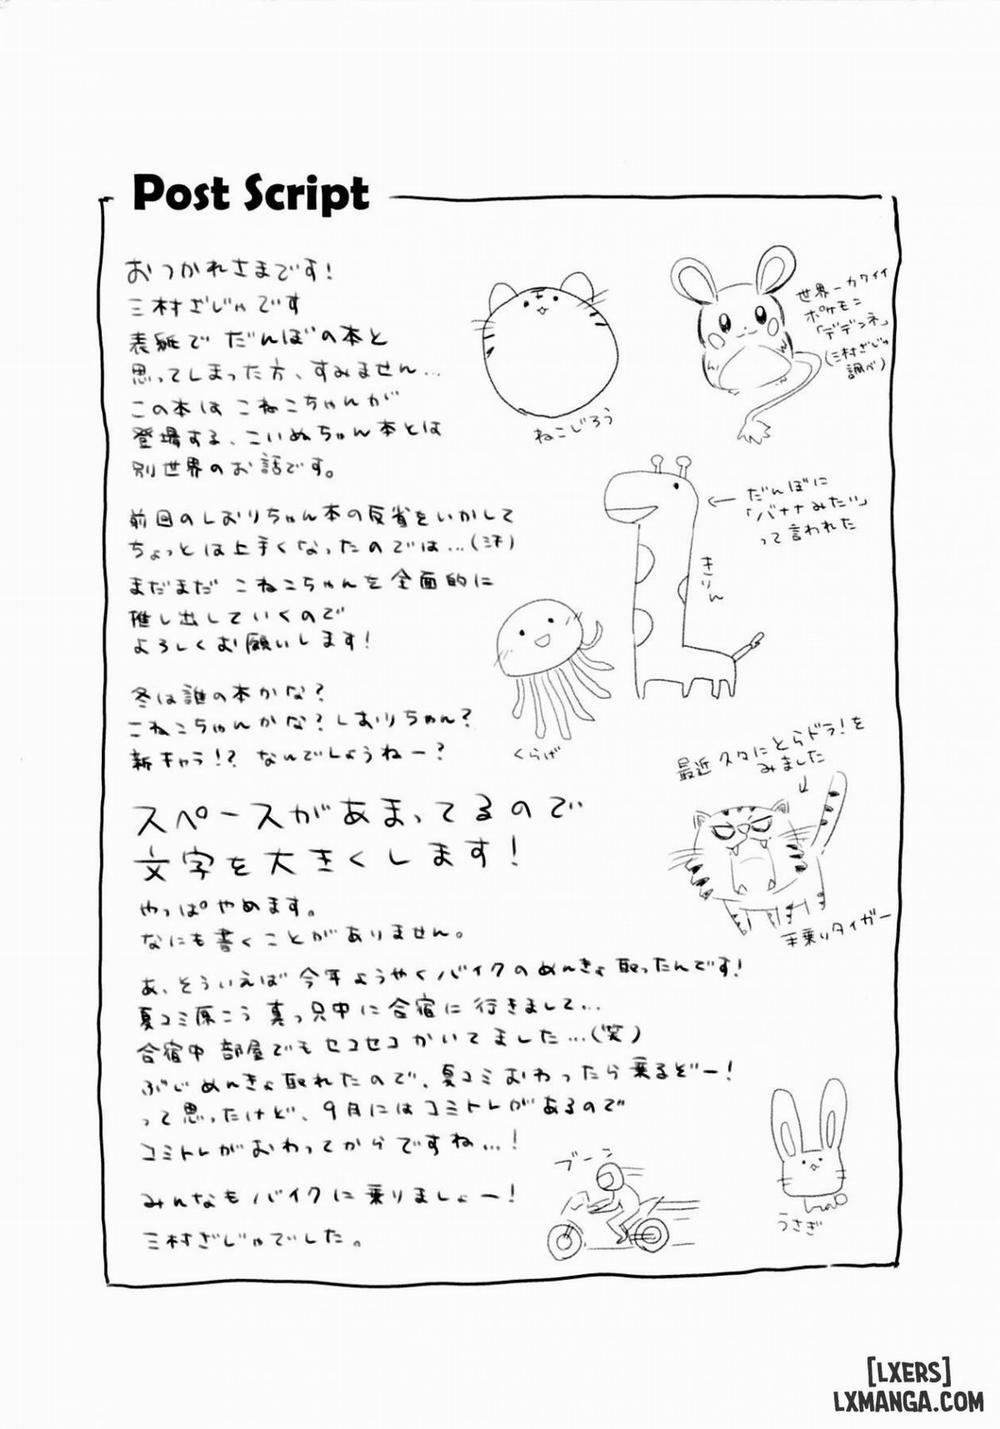 Post Script
おつかれさまです!
三村ざじゃです
表紙で だんぼの本と
思ってしまった方、すみません…
この本は こねこちゃんが
登場する、こいぬちゃん本とは
別世界のお話です。
前回のしおりちゃん本の反省をいかして
ちょっとは上手くなったのでは…(汗)
まだまだ こねこちゃんを全面的に
推し出していくので
よろしくお願いします!
冬は誰の本かな?
こねこちゃんかな?しおりちゃん?
新キャラ!? なんでしょうねー?
スペースがあまってるので
文字を大きくします!
やっぱやめます。
なにも書くことがありません。
あ、そういえば今年ようやくバイクのめんきょ取ったんです!
夏コミ原こう真っ只中に合宿に行きまして…
合宿中部屋でもセコセコかいてました…(笑)
ぶじめんきょ取れたので、夏コミおわったら乗るぞー!
って思ったけど、9月にはコミトレがあるので
コミトレがおわってからですね…!
みんなもバイクに乗りましょー!
三村ざじゃでした。
ねこじろう
世界一カワイイ
ポケモン
「デデンネ」
(三村ざじゃ
調べ)
だんぼに
「バナナみたい」
って言われた
きりん
くらげ
最近久々にとらドラ!を
みました
手乗りタイガー
ブーン
うさぎ
[LXERS]
LXMANGA.COM